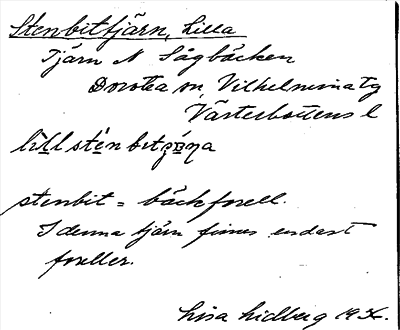 Stenbittjärn, Lilla
Tjärn N Sågbäcken
Dorotea sn, Vilhelmina tg
Västerbottens l
lill stén bit
stenbit = bäckforell.
I denna tjärn finnes endast
foreller.
Lisa Lidberg